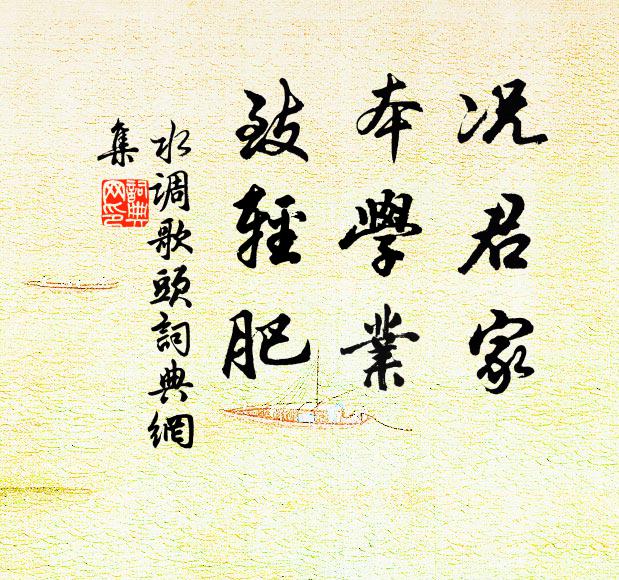 况君家
本學業
致輕肥
水调歌頭詞典網
集
詞典
网印